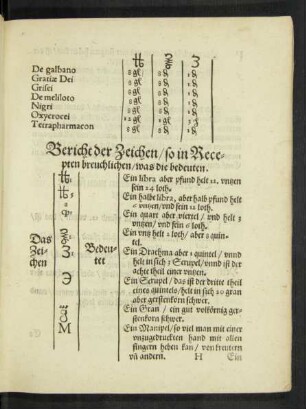 De galbano
Gratiæ Dei
Grisei
De meliloto
Nigri
Oxycrocei
Tetrapharmacon
Bericht der Zeichen / so in Rece-
pten breuchlichen / was die bedeuten.
Das
Zei-
chen
Bedeu-
tet
Ein libra aber pfund helt 12. vntzen
sein 24 loth.
Ein halbe libra, aber halb pfund helt
6 vntzen / vnd sein 12 loth.
Ein quart aber viertel / vnd helt 3
vntzen / vnd sein 6 loth.
Ein vntz helt 2 loth / aber 8 quin-
tel.
Ein Drachma aber 1 quintel / vnnd
helt in sich 3 Scrupel / vnnd ist der
achte theil einer vntzen.
Ein Scrupel / das ist der dritte theil
eines quintels / helt in sich 20 gran
aber gerstenkorn schwer.
Ein Gran / ein gut volkörnig ger-
stenkorn schwer.
M
Ein Manipel / so viel man mit einer
vnzgedruckten hand mit allen
fingern heben kan / von kreutern
vñ andern.
H
Ein